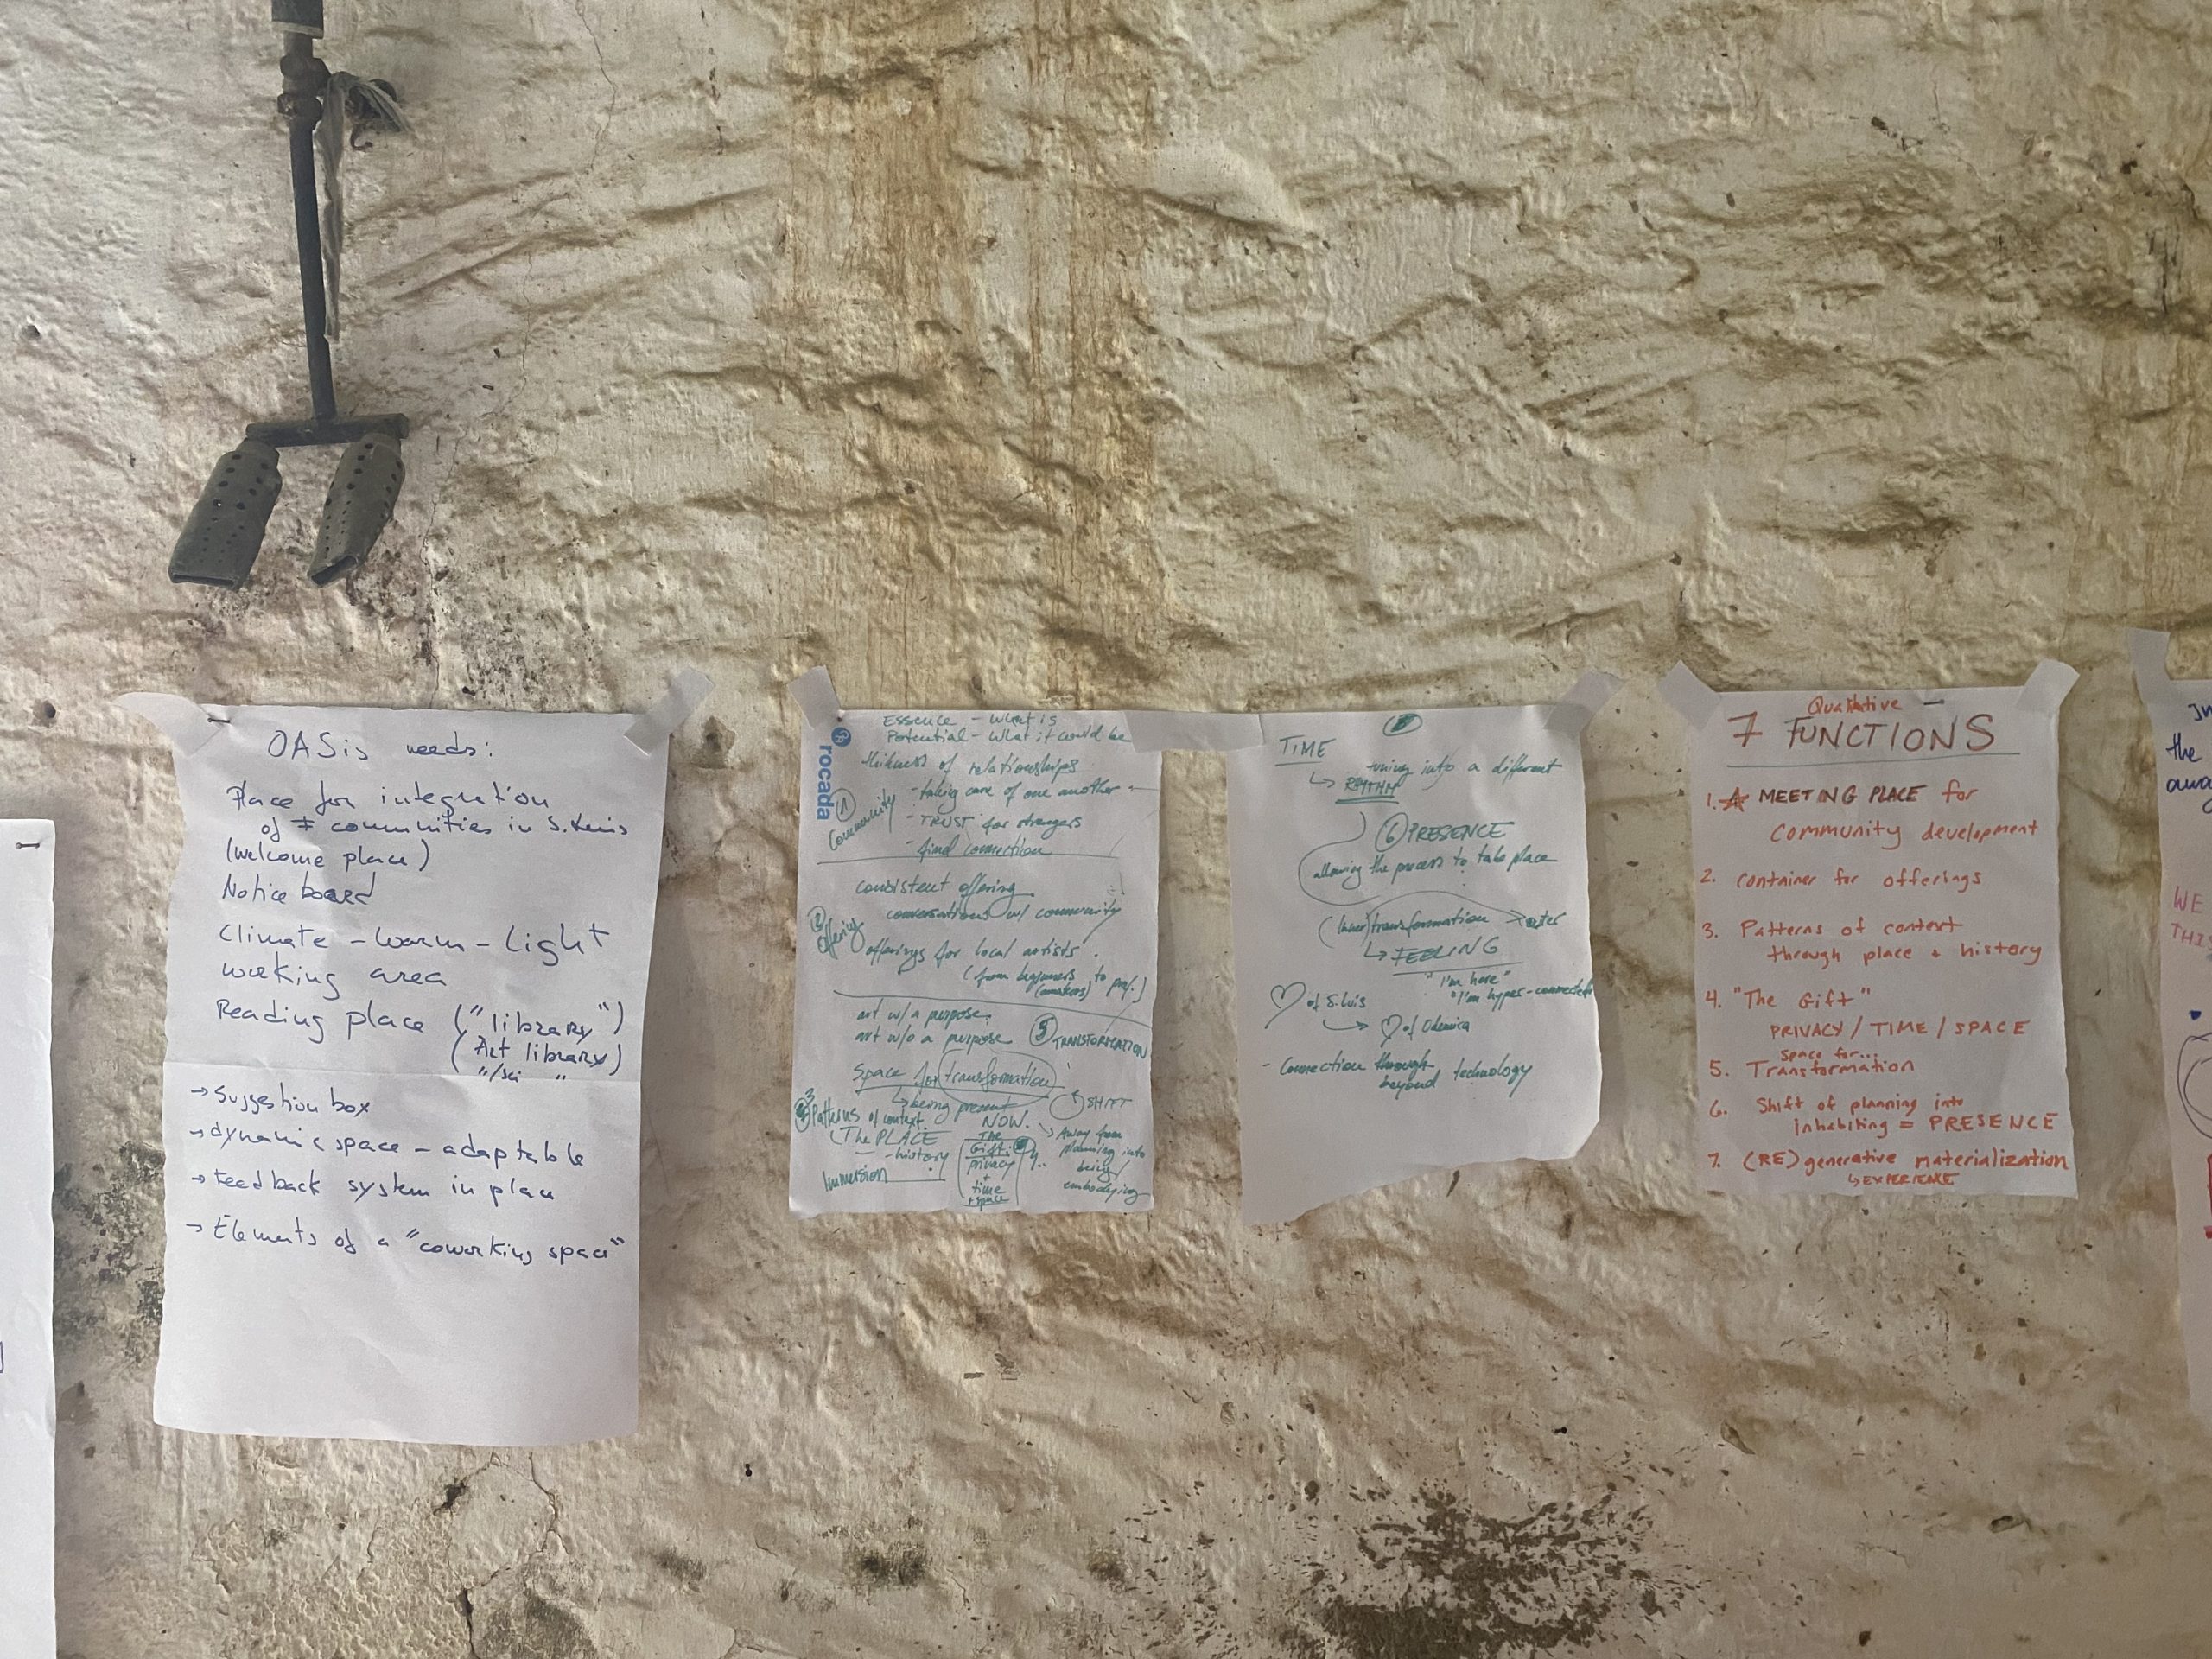 OASis needs:
Place for integration
of ≠ communities in S. Luis
(welcome place)
Notice board
Climate - warm - light
working area
Reading place ("library")
(Art library)
"/sci "
→ Suggestion box
→ dynamic space - adaptable
→ Feedback system in place
→ Elements of a "coworking space"
rocada
Essence - What is
Potential - What it could be
thikness of relationships
① Community
- taking care of one another
- TRUST for strangers
- find connection
② offering
consistent offering
conversations w/ community
offerings for local artists.
(from beginners to prof.)
(amateurs)
art w/ a purpose
art w/o a purpose
⑤ TRANSFORMATION
Space for transformation
↳ being present
NOW.
SHIFT
↘ Away from
planning into
being/
embodying
3 Patterns of context
(The PLACE
- history
Immersion
The
Gift:
privacy
+
time
+ space
TIME
↳ tuning into a different
RHYTHM
⑥ PRESENCE
allowing the process to take place
(Inner) transformation → outer
↳ FEELING
"I'm here"
"I'm hyper-connected"
♡ of S. Luis
→ ♡ of Odemira
- Connection through
beyond technology
Qualitative -
7 FUNCTIONS
1. A MEETING PLACE for
community development
2. container for offerings
3. Patterns of context
through place + history
4. "The Gift"
PRIVACY / TIME / SPACE
space for...
5. Transformation
6. Shift of planning into
inhabiting = PRESENCE
7. (RE)generative materialization
↳ EXPERIENCE
the
WE